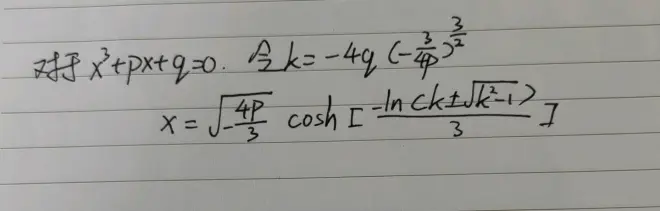 对于 x³+px+q=0. 令 k=-4q(-\frac{3}{4p})^{\frac{3}{2}}
x=\sqrt{-\frac{4p}{3}} cosh[\frac{-ln(k±\sqrt{k²-1})}{3}]